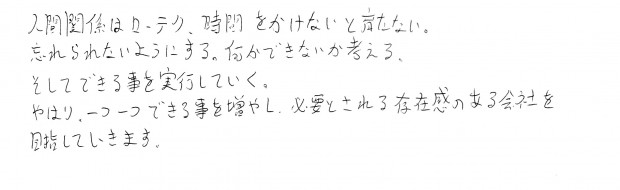 人間関係はローテク、時間をかけないと育たない。
忘れられないようにする。何かできないか考える、
そしてできる事を実行していく。
やはり、一つ一つできる事を増やし、必要とされる存在感のある会社を
目指していきます。